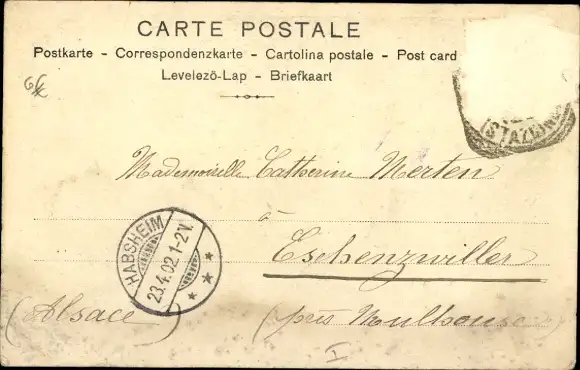 CARTE POSTALE
Postkarte - Correspondenzkarte - Cartolina postale - Post card
Levelező-Lap - Briefkaart
(STAZIONE
Mademoiselle Catherine Merten
à
Eschenzwiller
HABSHEIM
23.4.02.1-2V.
(Alsace)
(près Moulhouse)
I